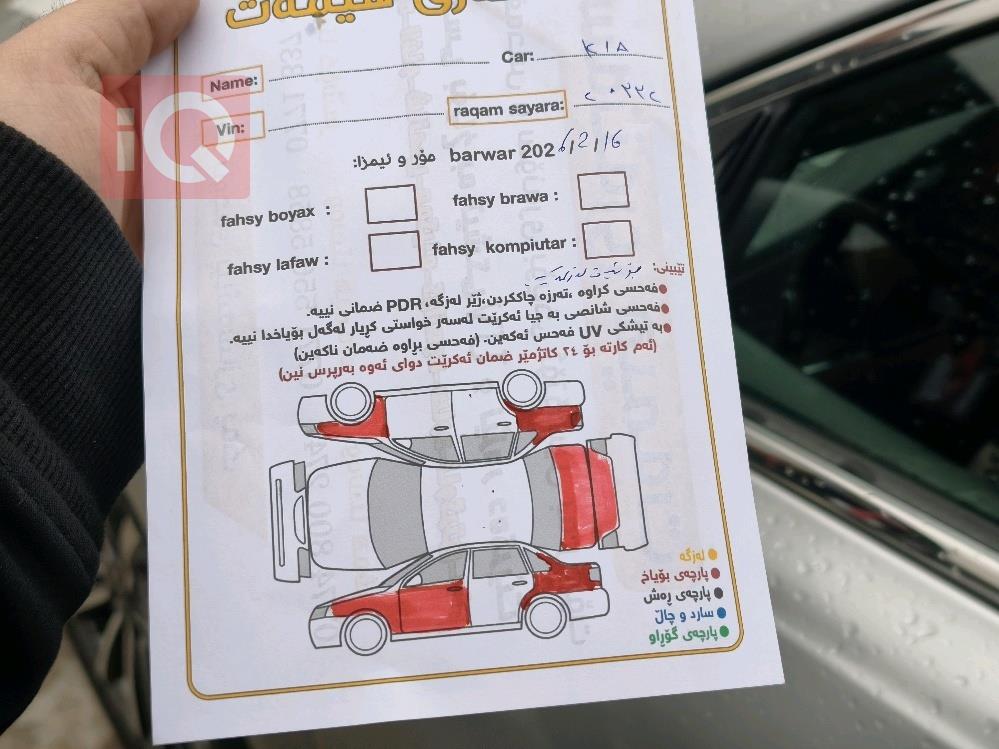 Name:
Car: KIA
Vin:
raqam sayara:
barwar 2026/2/16 مۆر و ئیمزا:
fahsy boyax :
fahsy brawa :
fahsy lafaw :
fahsy kompiutar :
تێبینی:
فەحسی کراوە ،تەرزە چاککردن،ژێر لەزگە، PDR ضمانی نییە.
فەحسی شانصی بە جیا ئەکرێت لەسەر خواستی کڕیار لەگەڵ بۆیاخدا نییە.
بە تیشکی UV فەحس ئەکەین. (فەحسی بڕاوە ضەمان ناکەین)
(ئەم کارتە بۆ ٢٤ کاتژمێر ضمان ئەکرێت دوای ئەوە بەرپرس نین)
لەزگە
پارچەی بۆیاخ
پارچەی ڕەش
سارد و چاڵ
پارچەی گۆڕاو
iQ